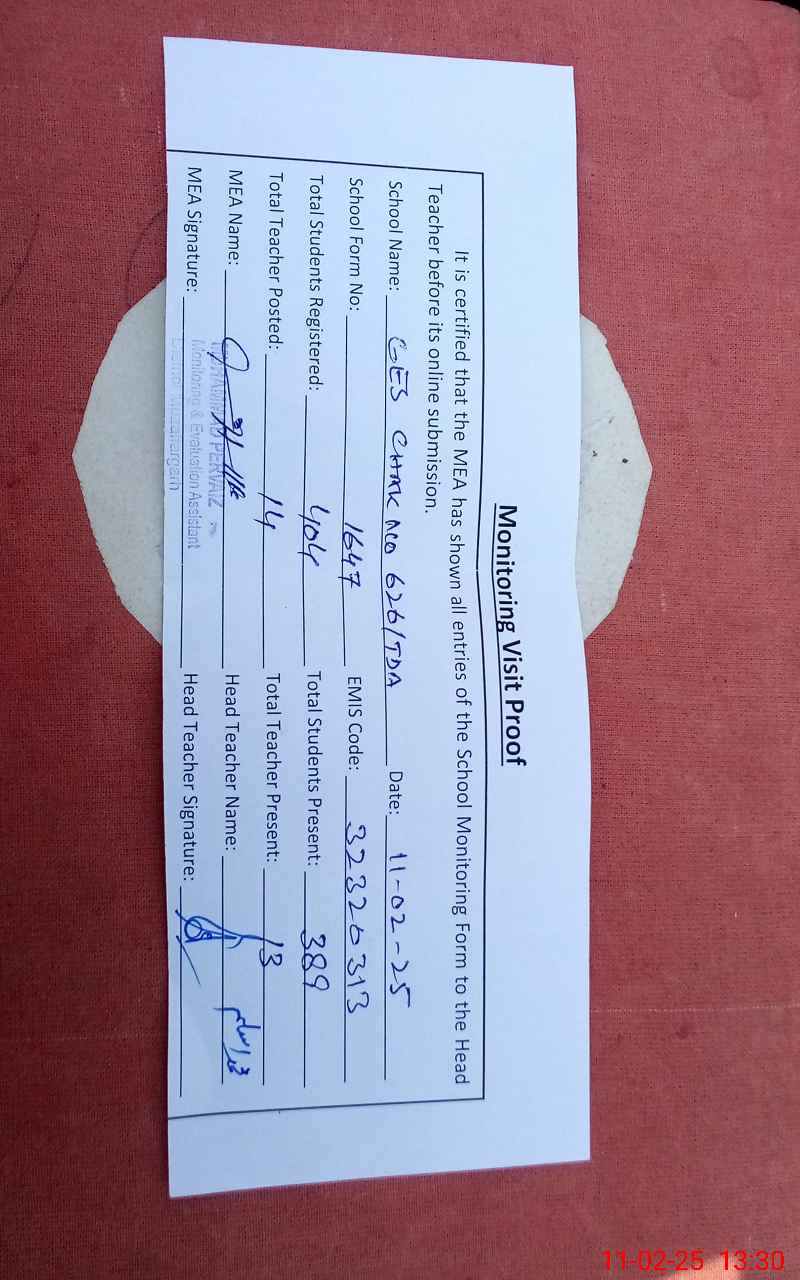 Monitoring Visit Proof
It is certified that the MEA has shown all entries of the School Monitoring Form to the Head
Teacher before its online submission.
School Name: GES CHAK NO 626/TDA Date: 11-02-25
School Form No: 1647 EMIS Code: 32320313
Total Students Registered: 404 Total Students Present: 389
Total Teacher Posted: 14 Total Teacher Present: 13
MEA Name: Head Teacher Name:
MUHAMMAD PERVAIZ
MEA Signature: Head Teacher Signature:
Monitoring & Evaluation Assistant
District Muzaffargarh
11-02-25 13:30